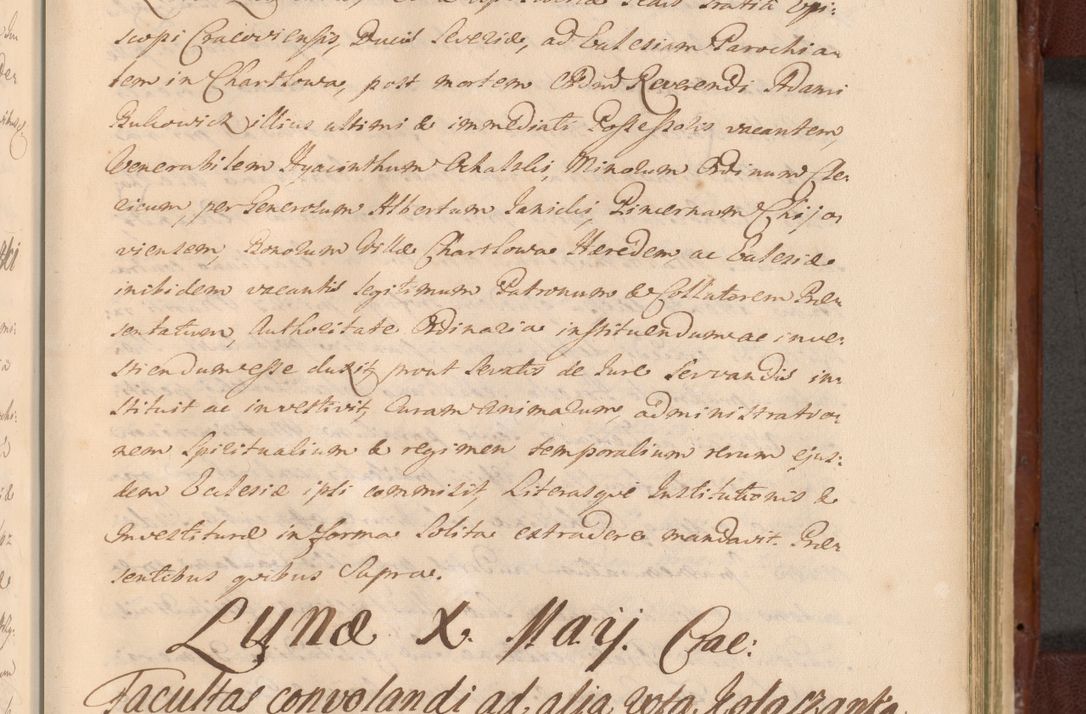 scopi Cracoviensis, Ducis Severiæ, ad Ecclesiam Parochia-
lem in Charsłowa, post mortem Admd Reverendi Adami
Bukowick illius ultimi & immediati Possessoris vacantem,
Venerabilem Hyacinthum Ochalski, Minorum Ordinum Cle-
ricum, per Generosum Albertum Janicki, Pincernam Chijo-
viensem, Bonorum Villæ Charsłowa Hæredem ac Ecclesiæ
inibidem vacantis legitimum Patronum & Collatorem Præ-
sentatum, Authoritate Ordinaria instituendum ac inve-
stiendum esse duxit, prout servatis de Jure Servandis in-
stituit ac investivit, Curam animarum, administratio-
nem Spiritualium & regimen temporalium rerum ejus-
dem Ecclesiæ ipsi commisit, Literasque Institutionis &
Investituræ in forma Solita extradere mandavit. Præ-
sentibus quibus Supra.
Lunæ X. Maij. Crac:
Facultas convolandi ad alia vota